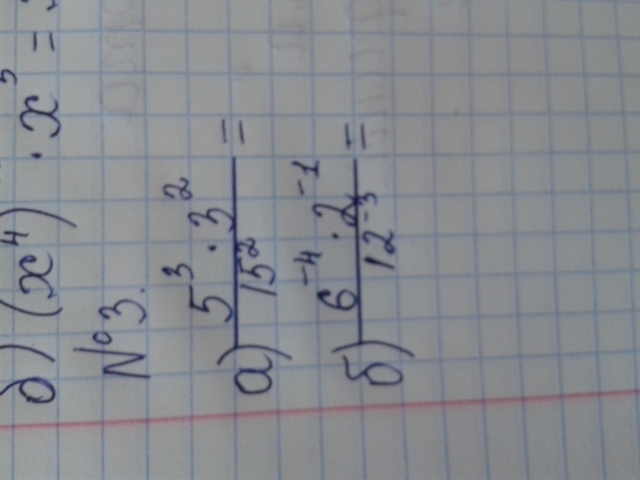 д) (x⁴) · x⁵ =
№3.
а) 5³ · 3² / 15² =
б) 6⁻⁴ · 2⁻¹ / 12⁻³ =